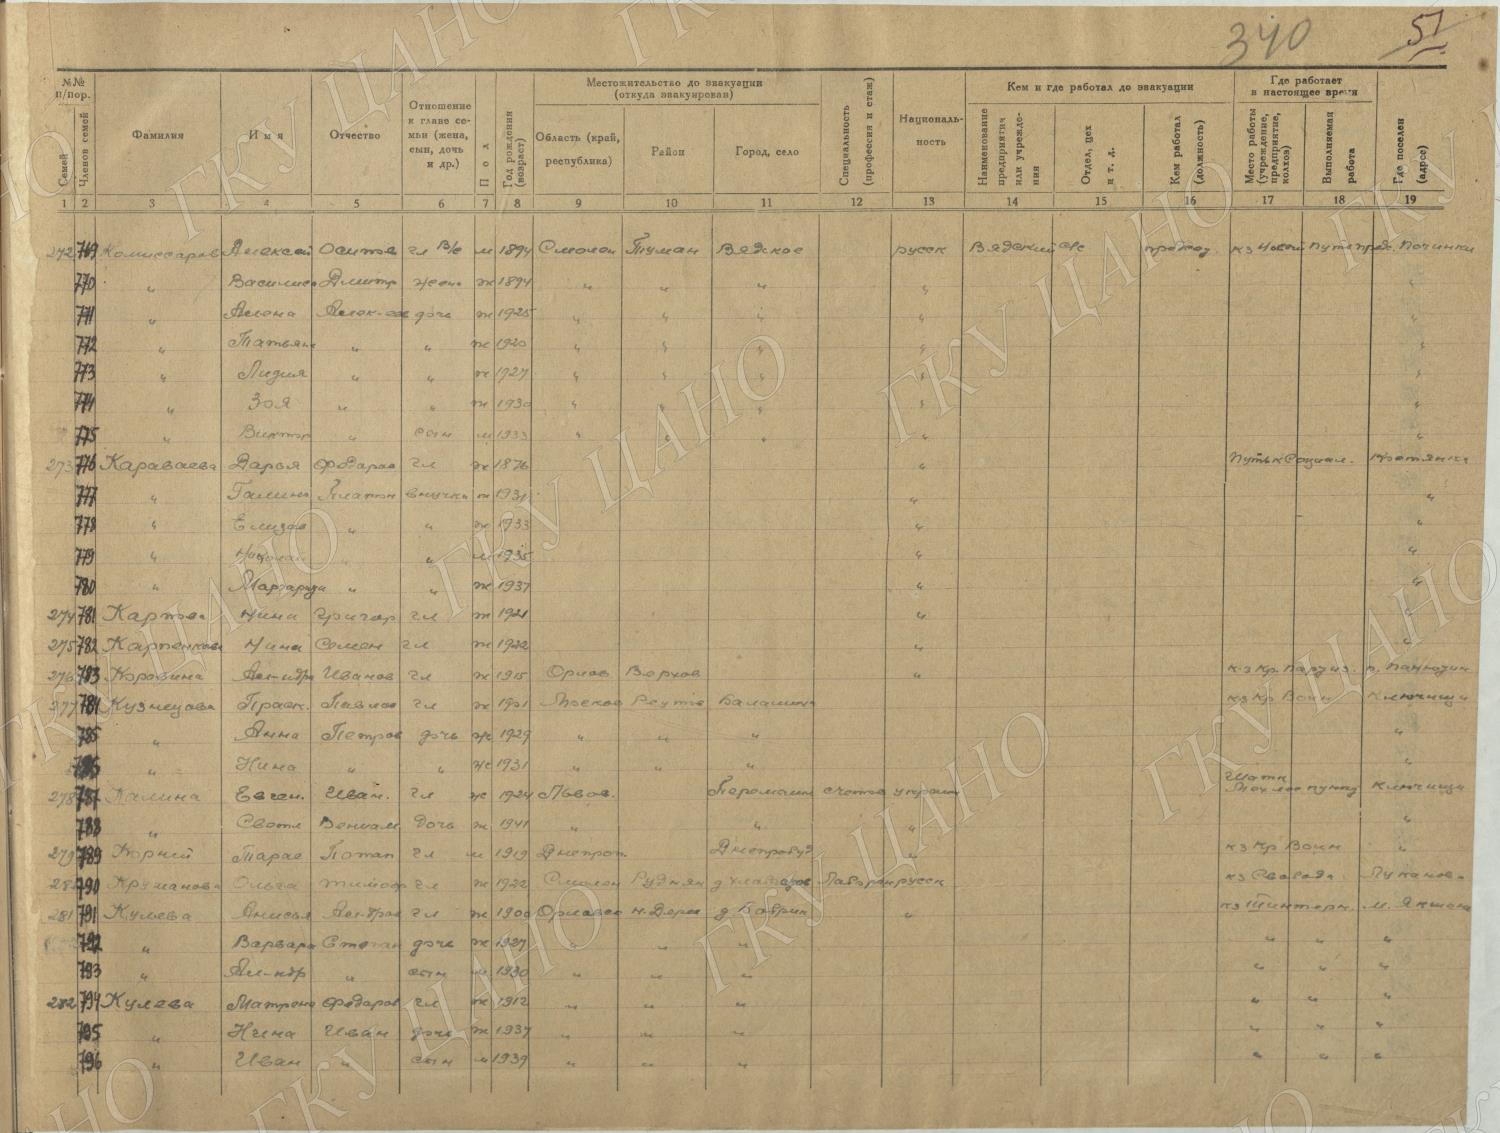 340 57
№№ п/пор.
Семей
Членов семей
Фамилия
Имя
Отчество
Отношение к главе семьи (жена, сын, дочь и др.)
Пол
Год рождения (возраст)
Местожительство до эвакуации (откуда эвакуирован)
Область (край, республика)
Район
Город, село
Специальность (профессия и стаж)
Националь-ность
Кем и где работал до эвакуации
Наименование предприятия или учрежде-ния
Отдел, цех и т. д.
Кем работал (должность)
Где работает в настоящее время
Место работы (учреждение, предприятие, колхоз)
Выполняемая работа
Где поселен (адрес)
1 2 3 4 5 6 7 8 9 10 11 12 13 14 15 16 17 18 19
272 769 Комиссаров Алексей Осипов гл В/с м 1894 Смолен Туман Вядское русск Вядский с/с кз Новый путь Починки
770 " Василиса Дмитр жена ж 1894 " " " "
771 " Алена Алек-ее дочь ж 1925 " " " "
772 " Татьяна " " ж 1920 " " " "
773 " Лидия " " ж 1927 " " " "
774 " Зоя " " ж 1930 " " " "
775 " Виктор " сын м 1933 " " " "
273 776 Караваева Дарья Федоров гл ж 1876 " Путь к Социал.
777 " Галина Платон внучка ж 1931 " "
778 " Елизав " " ж 1933 " "
779 " Николай " " м 1935 " "
780 " Маргарида " " ж 1937 " "
274 781 Нина Григор гл ж 1921 " "
275 782 Карпенкова Нина Семен гл ж 1922 " "
276 783 Коровина Ал-ндра Иванов гл ж 1915 Орлов Верхов " к-з Кр. Партиз.
277 784 Кузнецова Праск. Павлов гл ж 1901 Москов Реутов Балашиха кз Кр Воин Ключищи
785 " Анна Петров дочь ж 1929 " " " "
786 " Нина " " ж 1931 " " " "
278 787 Калина Евген. Иван. гл ж 1924 Львов. Перемышл счетов украин Шатк пункт Ключищи
788 " Светл Вениам дочь ж 1941 " " " "
279 789 Корний Тарас Потап гл м 1919 Днепроп. " кз Кр Воин "
790 Ольга Тимоф гл ж 1922 Смолен Руднян русск кз Свобода Луканово
281 791 Кулева Анисья гл ж 1900 Орловск н. Дерев " кз
792 " Варвара Степан дочь ж 1927 " " " " " "
793 " Ал-ндр " сын м 1930 " " " " " "
282 794 Кулева Матрена Федоров гл ж 1912 " " " " " "
795 " Нина Иван дочь ж 1937 " " " " " "
796 " Иван " сын м 1939 " " " " " "
ГКУ ЦАНО